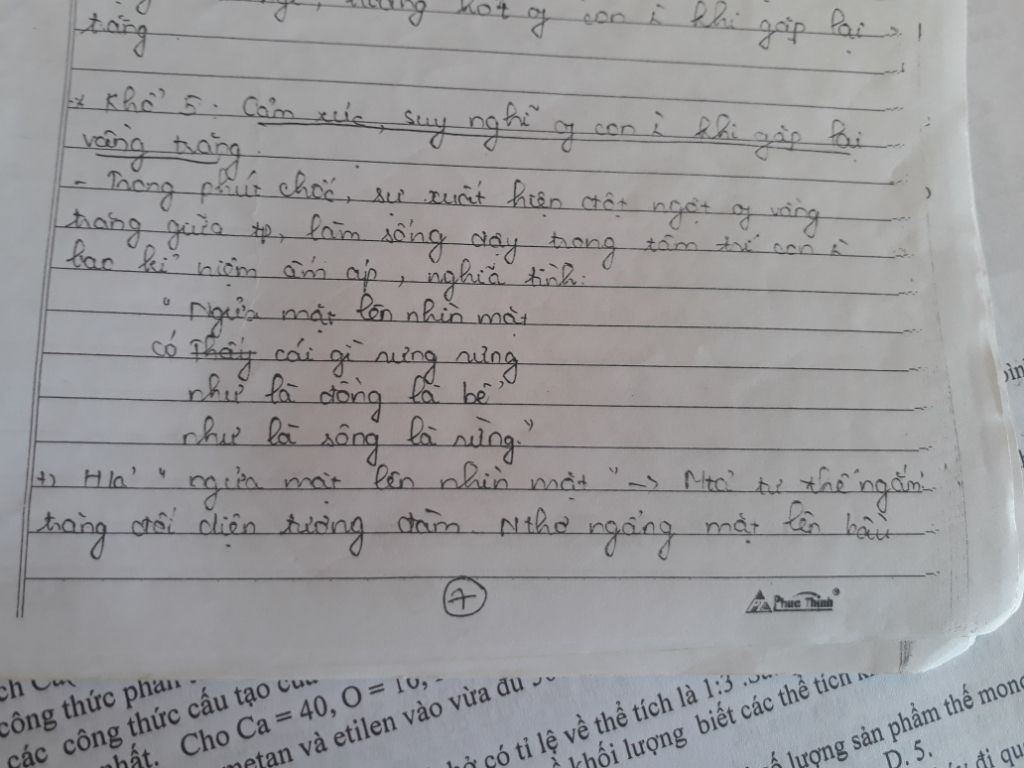 khi gặp lại
trăng
* Khổ 5: Cảm xúc, suy nghĩ of con i khi gặp lại
vầng trăng
- Trong phút chốc, sự xuất hiện đột ngột of vầng
trăng giữa tp, làm sống dạy trong tâm trí con i
bao kỉ niệm ấm áp, nghĩa tình:
"Ngửa mặt lên nhìn mặt
có thấy cái gì rưng rưng
như là đồng là bể
như là sông là rừng."
+) Hả "ngửa mặt lên nhìn mặt" -> Mtả tư thế ngắm
trăng đối diện tượng đàm Nthơ ngẩng mặt lên bầu
7
Phuc Thinh
công thức phân
các công thức cấu tạo của
nhất. Cho Ca = 40, O = 16,
metan và etilen vào vừa đủ
có tỉ lệ về thể tích là 1:3
khối lượng biết các thể tích
lượng sản phẩm thế
D. 5.
đi qu